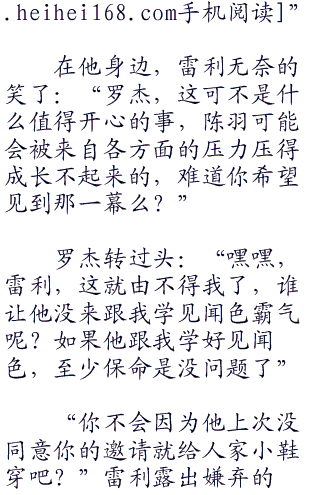 .heihei168.com手机阅读]”
在他身边，雷利无奈的
笑了：“罗杰，这可不是什
么值得开心的事，陈羽可能
会被来自各方面的压力压得
成长不起来的，难道你希望
见到那一幕么？”
罗杰转过头：“嘿嘿，
雷利，这就由不得我了，谁
让他没来跟我学见闻色霸气
呢？如果他跟我学好见闻
色，至少保命是没问题了”
“你不会因为他上次没
同意你的邀请就给人家小鞋
穿吧？”雷利露出嫌弃的